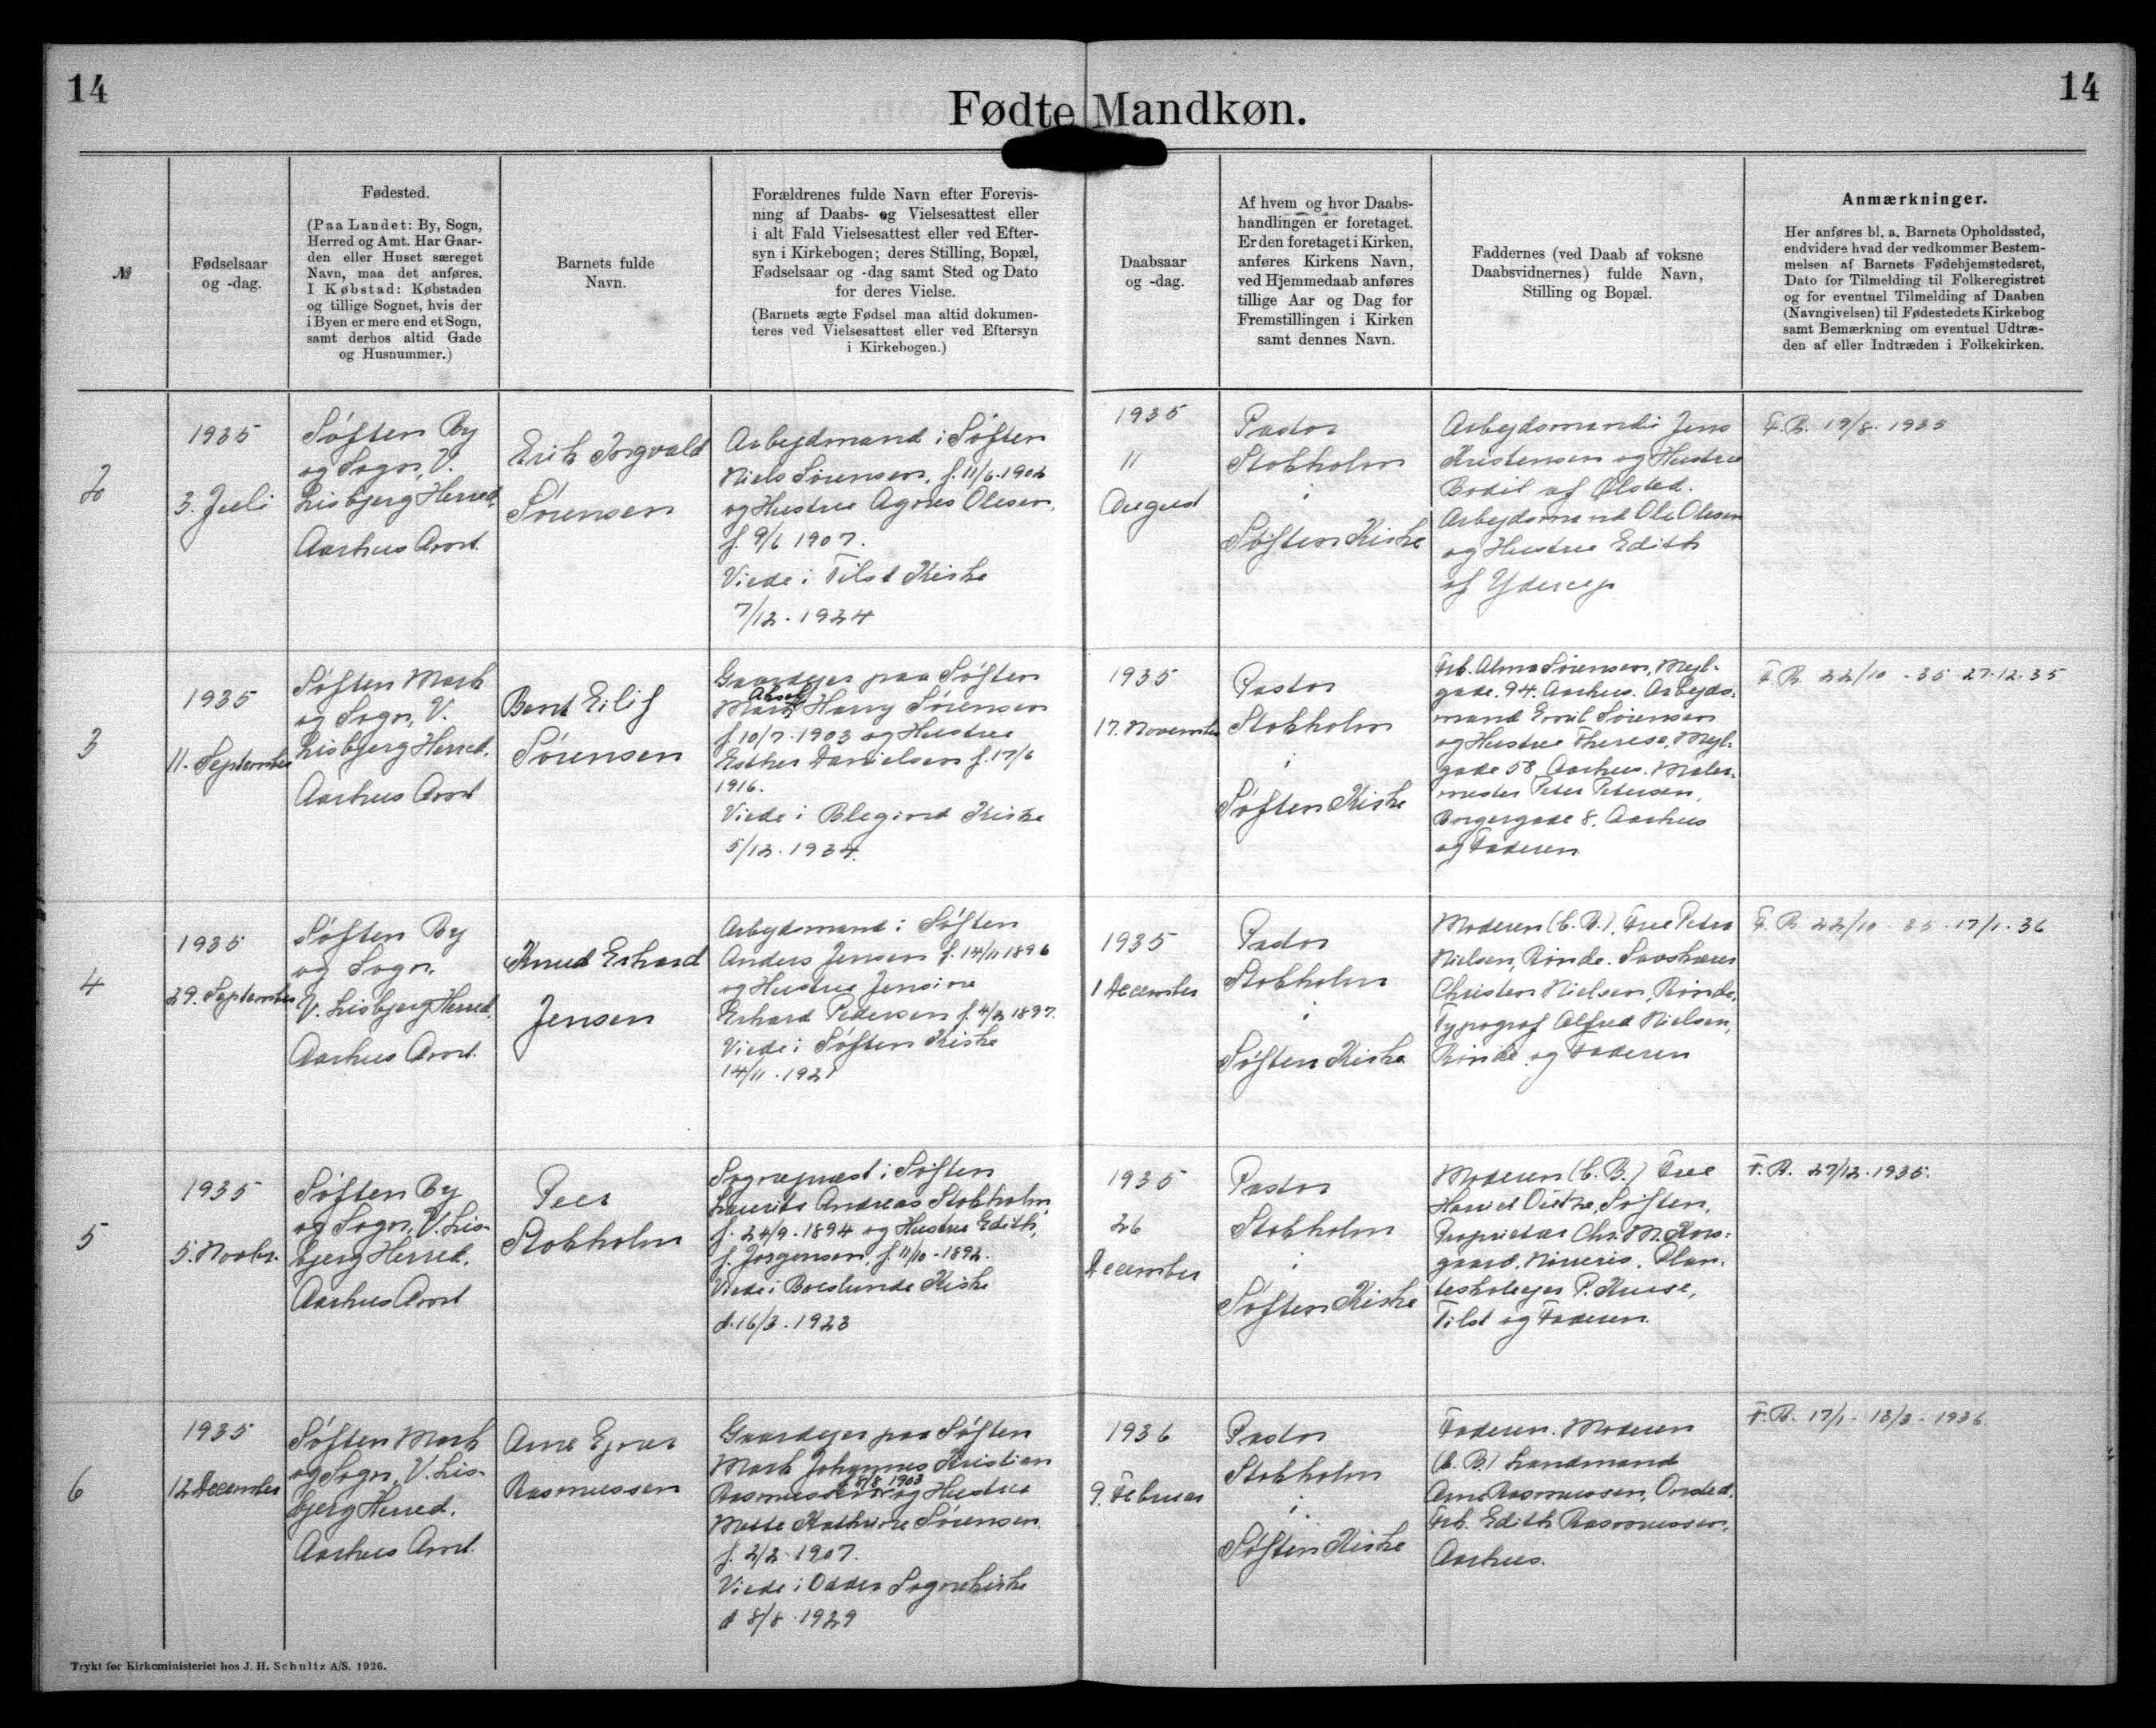 14
14
Fødte Mandkøn.
№
Fødselsaar
og -dag.
Fødested.
(Paa Landet: By, Sogn,
Herred og Amt. Har Gaar-
den eller Huset særeget
Navn, maa det anføres.
I Købstad: Købstaden
og tillige Sognet, hvis der
i Byen er mere end et Sogn,
samt derhos altid Gade
og Husnummer.)
Barnets fulde
Navn.
Forældrenes fulde Navn efter Forevis-
ning af Daabs- og Vielsesattest eller
i alt Fald Vielsesattest eller ved Efter-
syn i Kirkebogen; deres Stilling, Bopæl,
Fødselsaar og -dag samt Sted og Dato
for deres Vielse.
(Barnets ægte Fødsel maa altid dokumen-
teres ved Vielsesattest eller ved Eftersyn
i Kirkebogen.)
Daabsaar
og -dag.
Af hvem og hvor Daabs-
handlingen er foretaget.
Er den foretaget i Kirken,
anføres Kirkens Navn,
ved Hjemmedaab anføres
tillige Aar og Dag for
Fremstillingen i Kirken
samt dennes Navn.
Faddernes (ved Daab af voksne
Daabsvidnernes) fulde Navn,
Stilling og Bopæl.
Anmærkninger.
Her anføres bl. a. Barnets Opholdssted,
endvidere hvad der vedkommer Bestem-
melsen af Barnets Fødehjemstedsret,
Dato for Tilmelding til Folkeregistret
og for eventuel Tilmelding af Daaben
(Navngivelsen) til Fødestedets Kirkebog
samt Bemærkning om eventuel Udtræ-
den af eller Indtræden i Folkekirken.
2
1935
3. Juli
Søften By
og Sogn, V.
Lisbjerg Herred,
Aarhus Amt.
Erik Ingvald
Sørensen
Arbejdmand i Søften
Niels Sørensen, f. 11/6 1902
og Hustru Agnes Olesen,
f. 9/6 1907.
Viede i Tilst Kirke
7/12. 1924
1935
11
August
Pastor
Stokholm
i
Søften Kirke
Arbejdsmand Jens
Kristensen og Hustru
Bodil af Ølsted.
Arbejdsmand Ole Olesen
og Hustru Edith
af Yderup
F.R. 19/8. 1935
3
1935
11. September
Søften Mark
og Sogn, V.
Lisbjerg Herred.
Aarhus Amt
Bent Eilif
Sørensen
Gaardejer paa Søften
Aksel
Mark Harry Sørensen
f. 10/7. 1903 og Hustru
Esther Danielsen f. 17/6
1916.
Viede i Blegind Kirke
5/12. 1934.
1935
17. November
Pastor
Stokholm
i
Søften Kirke
Frk. Alma Sørensen, Mejl-
gade. 94. Aarhus. Arbejds-
mand Emil Sørensen
og Hustru Therese, Mejl-
gade 58, Aarhus. Maler-
mester Peter Petersen,
Borgergade 8. Aarhus
og Faderen
F.R. 22/10 - 35 27.12.35
4
1935
29. September
Søften By
og Sogn.
V. Lisbjerg Herred,
Aarhus Amt.
Knud Erhard
Jensen
Arbejdsmand i Søften
Anders Jensen f. 14/11 1896
og Hustru Jensine
Erhard Pedersen f. 4/2 1897.
Viede i Søften Kirke
14/11. 1921
1935
1 December
Pastor
Stokholm
i
Søften Kirke
Moderen (b. B.), Frue Petra
Nielsen, Rønde. Savskærer
Christen Nielsen, Rønde,
Typograf Alfred Nielsen,
Rønde og Faderen
F.R. 22/10 35 - 17/1. 36
5
1935
5. Novbr.
Søften By
og Sogn, V. Lis-
bjerg Herred.
Aarhus Amt
Peer
Stokholm
Sognepræst i Søften
Laurits Andreas Stokholm,
f. 24/9. 1894 og Hustru Edith,
f. Jørgensen, f. 11/10 - 1892.
Viede i Boeslunde Kirke
d. 16/3. 1923
1935
26
December
Pastor
Stokholm
i
Søften Kirke
Moderen (b. B.) Frue
Søften,
Proprietær Chr. M. Kors-
gaard, Plan-
teskoleejer P. Kruse,
Tilst og Faderen.
F.R. 27/12. 1935.
6
1935
12 December
Søften Mark
og Sogn, V. Lis-
bjerg Herred.
Aarhus Amt.
Arne Ejner
Rasmussen
Gaardejer paa Søften
Mark Johannes Kristian
f. 8/8 1903
Rasmussen og Hustru
Mette Kathrine Sørensen.
f. 2/2. 1907.
Viede i Odder Sognekirke
d 8/8. 1929
1936
9. Februar
Pastor
Stokholm
i
Søften Kirke
Faderen. Moderen
(b. B.) Landmand
Arne Rasmussen,
Frk. Edith Rasmussen,
Aarhus.
F.R. 17/1 - 13/3 - 1936
Trykt for Kirkeministeriet hos J. H. Schultz A/S. 1926.